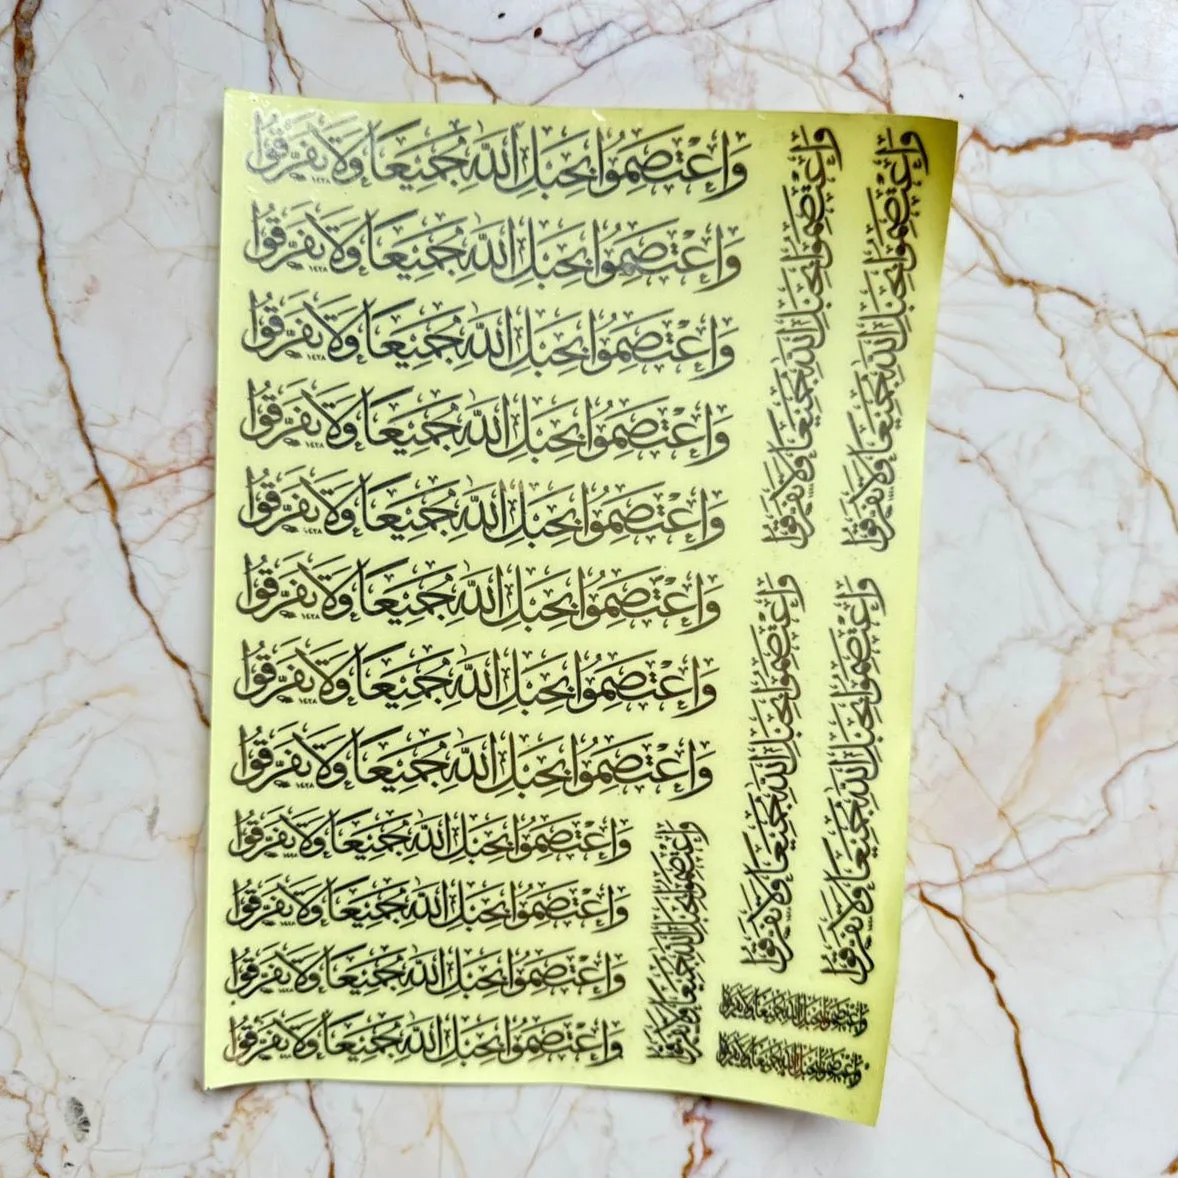 وَاعْتَصِمُوا بِحَبْلِ اللَّهِ جَمِيعًا وَلَا تَفَرَّقُوا ١٤٢٨
وَاعْتَصِمُوا بِحَبْلِ اللَّهِ جَمِيعًا وَلَا تَفَرَّقُوا ١٤٢٨
وَاعْتَصِمُوا بِحَبْلِ اللَّهِ جَمِيعًا وَلَا تَفَرَّقُوا ١٤٢٨
وَاعْتَصِمُوا بِحَبْلِ اللَّهِ جَمِيعًا وَلَا تَفَرَّقُوا ١٤٢٨
وَاعْتَصِمُوا بِحَبْلِ اللَّهِ جَمِيعًا وَلَا تَفَرَّقُوا ١٤٢٨
وَاعْتَصِمُوا بِحَبْلِ اللَّهِ جَمِيعًا وَلَا تَفَرَّقُوا ١٤٢٨
وَاعْتَصِمُوا بِحَبْلِ اللَّهِ جَمِيعًا وَلَا تَفَرَّقُوا ١٤٢٨
وَاعْتَصِمُوا بِحَبْلِ اللَّهِ جَمِيعًا وَلَا تَفَرَّقُوا ١٤٢٨
وَاعْتَصِمُوا بِحَبْلِ اللَّهِ جَمِيعًا وَلَا تَفَرَّقُوا ١٤٢٨
وَاعْتَصِمُوا بِحَبْلِ اللَّهِ جَمِيعًا وَلَا تَفَرَّقُوا ١٤٢٨
وَاعْتَصِمُوا بِحَبْلِ اللَّهِ جَمِيعًا وَلَا تَفَرَّقُوا ١٤٢٨
وَاعْتَصِمُوا بِحَبْلِ اللَّهِ جَمِيعًا وَلَا تَفَرَّقُوا ١٤٢٨
وَاعْتَصِمُوا بِحَبْلِ اللَّهِ جَمِيعًا وَلَا تَفَرَّقُوا
وَاعْتَصِمُوا بِحَبْلِ اللَّهِ جَمِيعًا وَلَا تَفَرَّقُوا
وَاعْتَصِمُوا بِحَبْلِ اللَّهِ جَمِيعًا وَلَا تَفَرَّقُوا
وَاعْتَصِمُوا بِحَبْلِ اللَّهِ جَمِيعًا وَلَا تَفَرَّقُوا
وَاعْتَصِمُوا بِحَبْلِ اللَّهِ جَمِيعًا وَلَا تَفَرَّقُوا
وَاعْتَصِمُوا بِحَبْلِ اللَّهِ جَمِيعًا وَلَا تَفَرَّقُوا
وَاعْتَصِمُوا بِحَبْلِ اللَّهِ جَمِيعًا وَلَا تَفَرَّقُوا